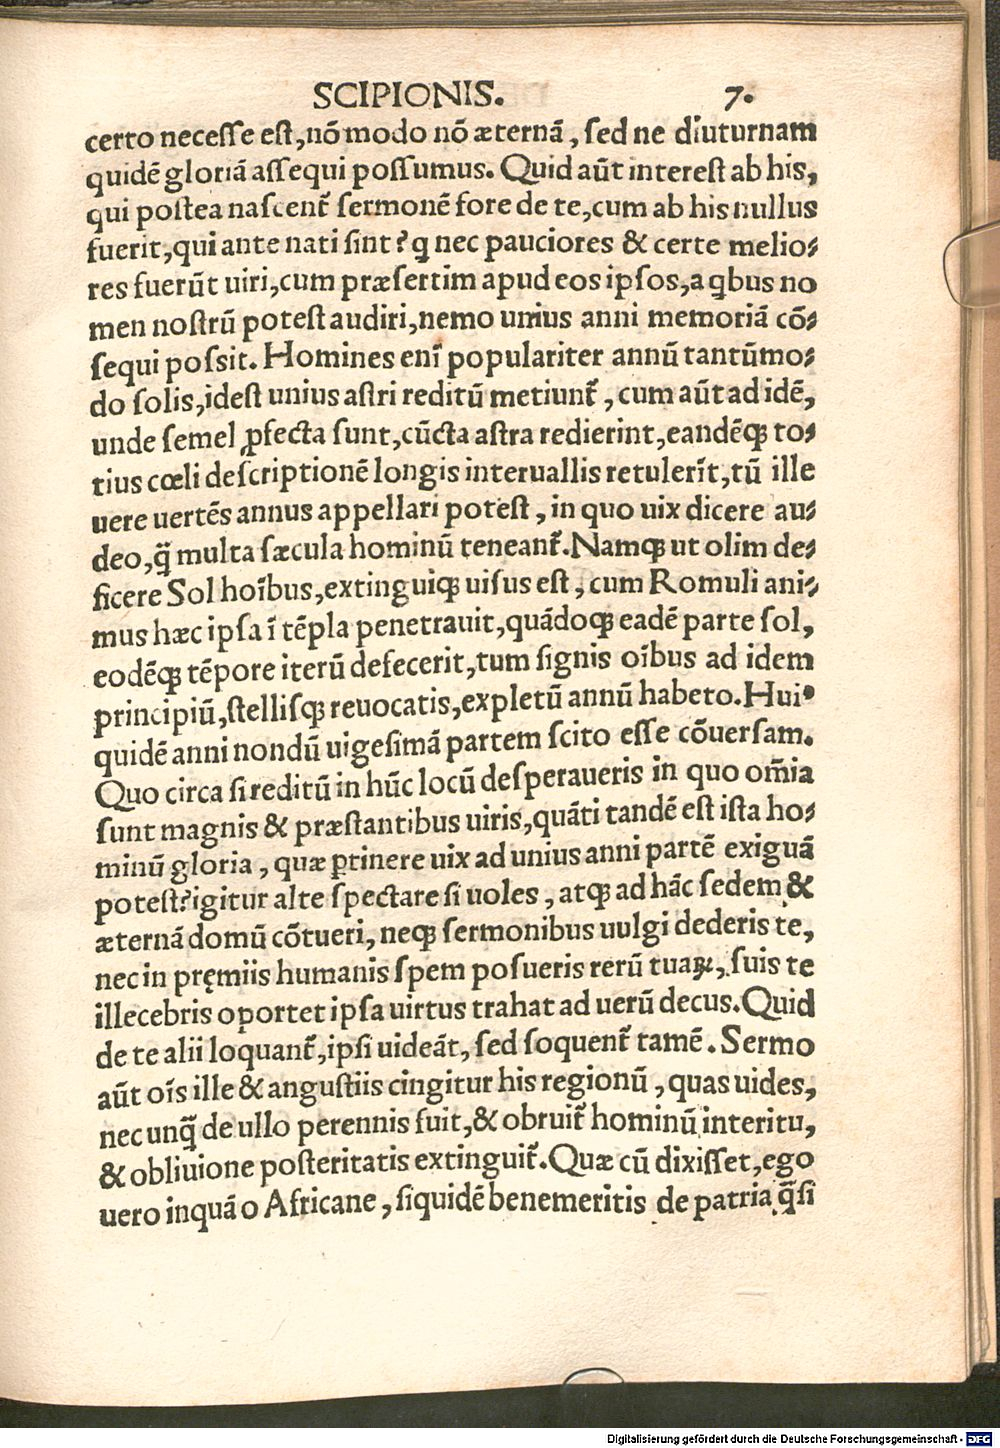 SCIPIONIS. 7.
certo necesse est,nō modo nō æternā, sed ne diuturnam
quidē gloriā assequi possumus. Quid aūt interest ab his,
qui postea nascent᷑ sermonē fore de te,cum ab his nullus
fuerit,qui ante nati sint? q nec pauciores & certe melio⸗
res fuerūt uiri,cum præsertim apud eos ipsos,a qbus no
men nostrū potest audiri,nemo unius anni memoriā cō⸗
sequi possit. Homines enī populariter annū tantūmo⸗
do solis,idest unius astri reditū metiunt᷑, cum aūt ad idē,
unde semel ꝓfecta sunt,cūcta astra redierint,eandēqꝫ to⸗
tius cœli descriptionē longis interuallis retulerīt,tū ille
uere uertēs annus appellari potest, in quo uix dicere au⸗
deo,q̄ multa sæcula hominū teneant᷑. Namqꝫ ut olim de⸗
ficere Sol hoībus,extinguiqꝫ uisus est, cum Romuli ani⸗
mus hæc ipsa ī tēpla penetrauit,quādoqꝫ eadē parte sol,
eodēqꝫ tēpore iterū defecerit,tum signis oībus ad idem
principiū,stellisqꝫ reuocatis,expletū annū habeto. Huiꝰ
quidē anni nondū uigesimā partem scito esse cōuersam.
Quo circa si reditū in hūc locū desperaueris in quo om̄ia
sunt magnis & præstantibus uiris,quāti tandē est ista ho⸗
minū gloria, quæ ꝑtinere uix ad unius anni partē exiguā
potest? igitur alte spectare si uoles, atqꝫ ad hāc sedem &
æternā domū cōtueri, neqꝫ sermonibus uulgi dederis te,
nec in pręmiis humanis spem posueris rerū tuaꝝ, suis te
illecebris oportet ipsa uirtus trahat ad uerū decus. Quid
de te alii loquant᷑,ipsi uideāt, sed loquent᷑ tamē. Sermo
aūt oīs ille & angustiis cingitur his regionū, quas uides,
nec unq̄ de ullo perennis fuit,& obruit᷑ hominū interitu,
& obliuione posteritatis extinguit᷑. Quæ cū dixisset,ego
uero inquā o Africane, siquidē benemeritis de patria q̄si
Digitalisierung gefördert durch die Deutsche Forschungsgemeinschaft - DFG